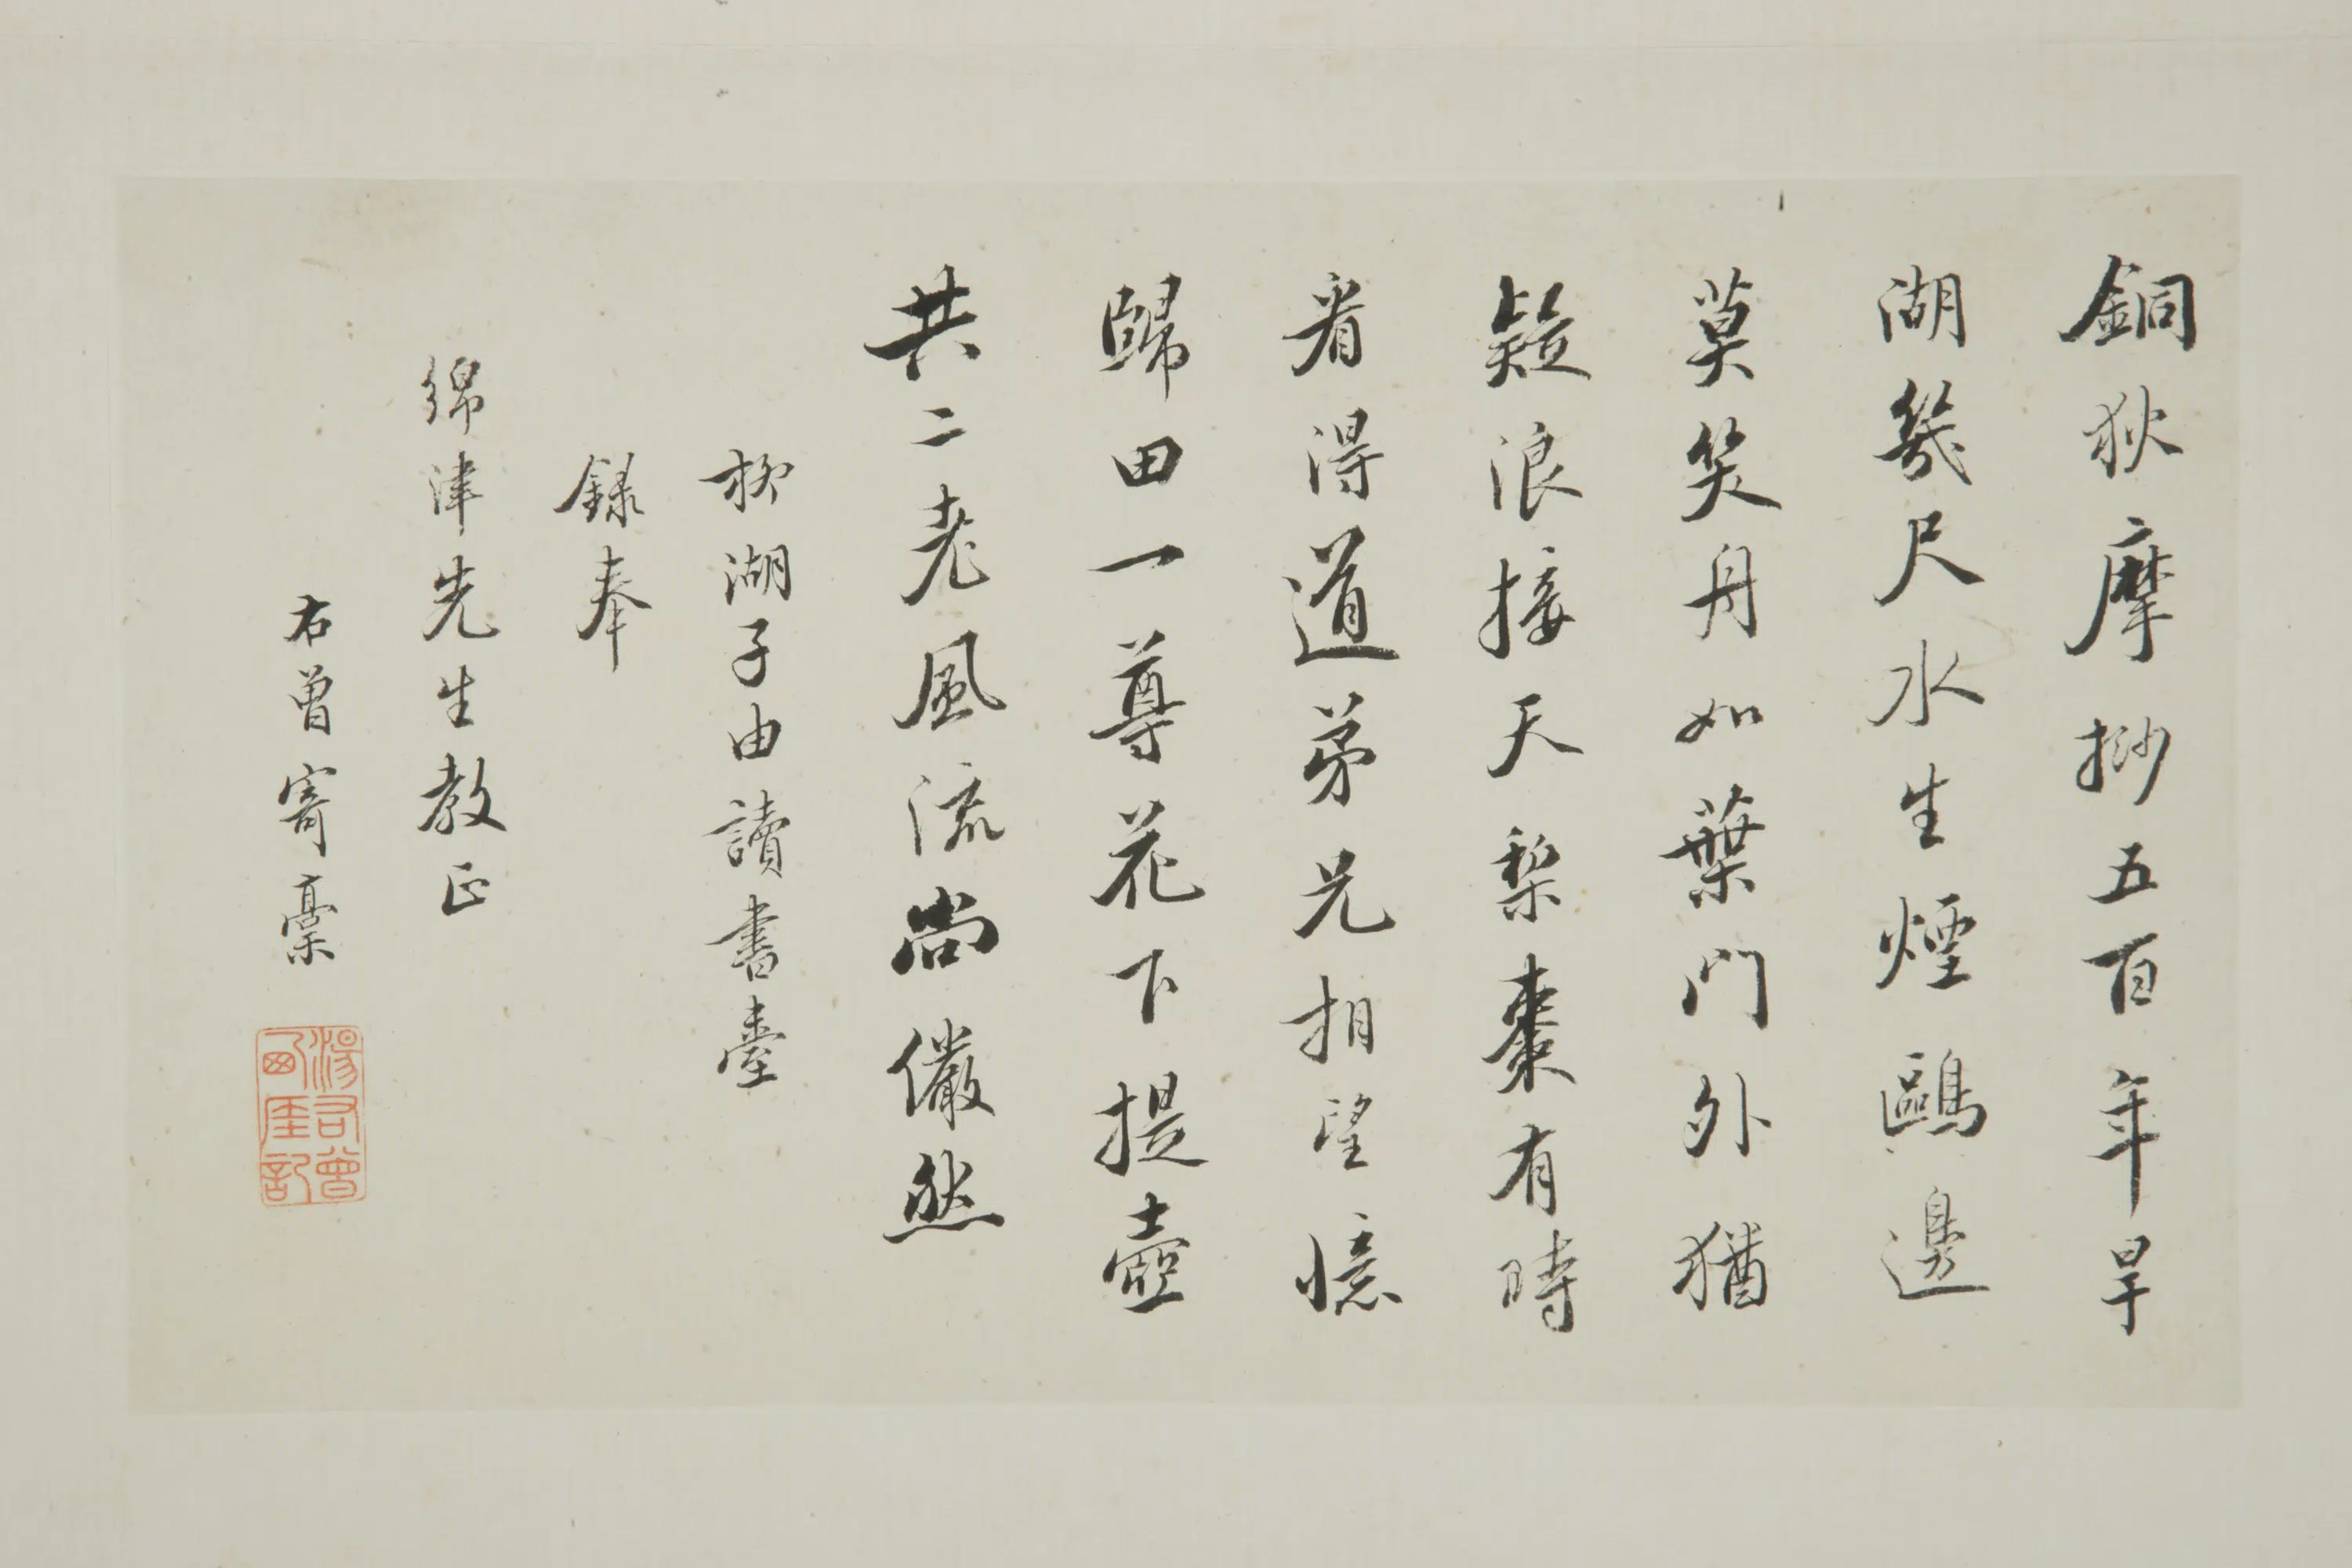 銅狄摩挱五百年旱
湖幾尺水生煙鷗邊
莫笑舟如葉門外猶
疑浪接天梨棗有時
看得道弟兄相望憶
歸田一尊花下提壺
共二老風流尚儼然
柳湖子由讀書臺
錄奉
綿津先生教正
右曾寄稾
湯右曾
西厓記